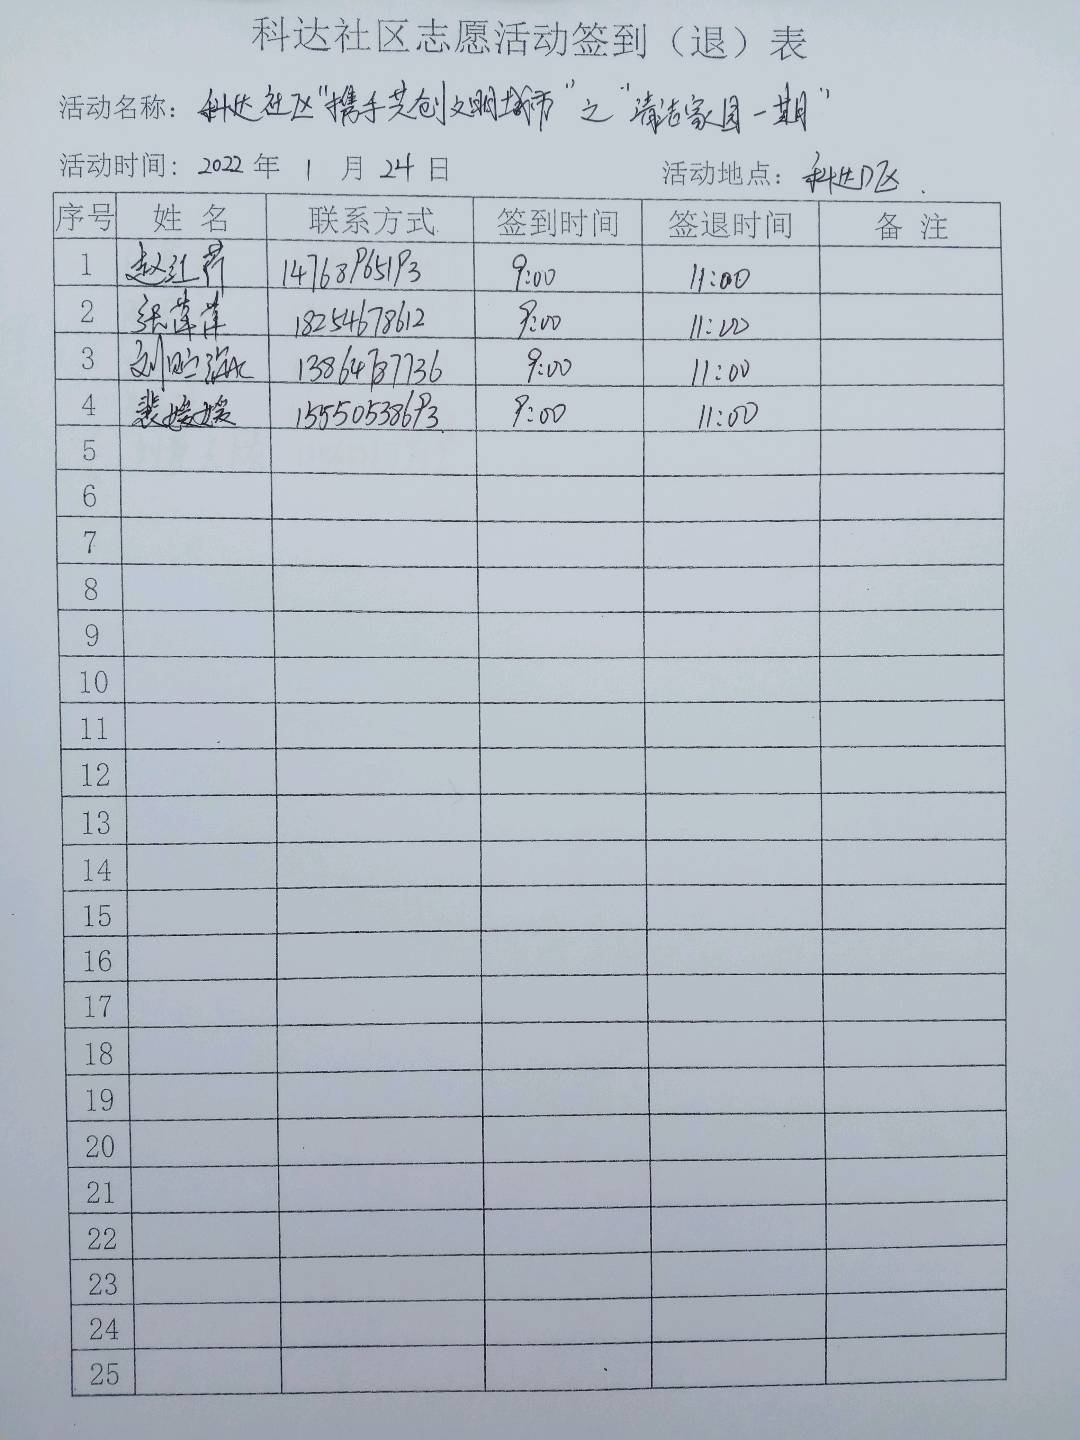 科达社区志愿活动签到（退）表
活动名称：科达社区“携手共创文明城市”之“清洁家园一期”
活动时间：2022年1月24日 活动地点：科达D区.
序号 姓名 联系方式 签到时间 签退时间 备注
1 赵红 14768965193 9:00 11:00
2 张萍萍 18254678612 9:00 11:00
3 刘 13864787736 9:00 11:00
4 裴媛媛 15550538693 9:00 11:00
5
6
7
8
9
10
11
12
13
14
15
16
17
18
19
20
21
22
23
24
25